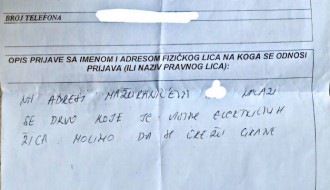 BROJ TELEFONA
OPIS PRIJAVE SA IMENOM I ADRESOM FIZIČKOG LICA NA KOGA SE ODNOSI
PRIJAVA (ILI NAZIV PRAVNOG LICA):
NA ADRESI MAŽURANIĆEVA NALAZI
SE DRVO KOJE JE VISINE ELEKTRIČNIH
ŽICA MOLIMO DA SE OREŽU GRANE